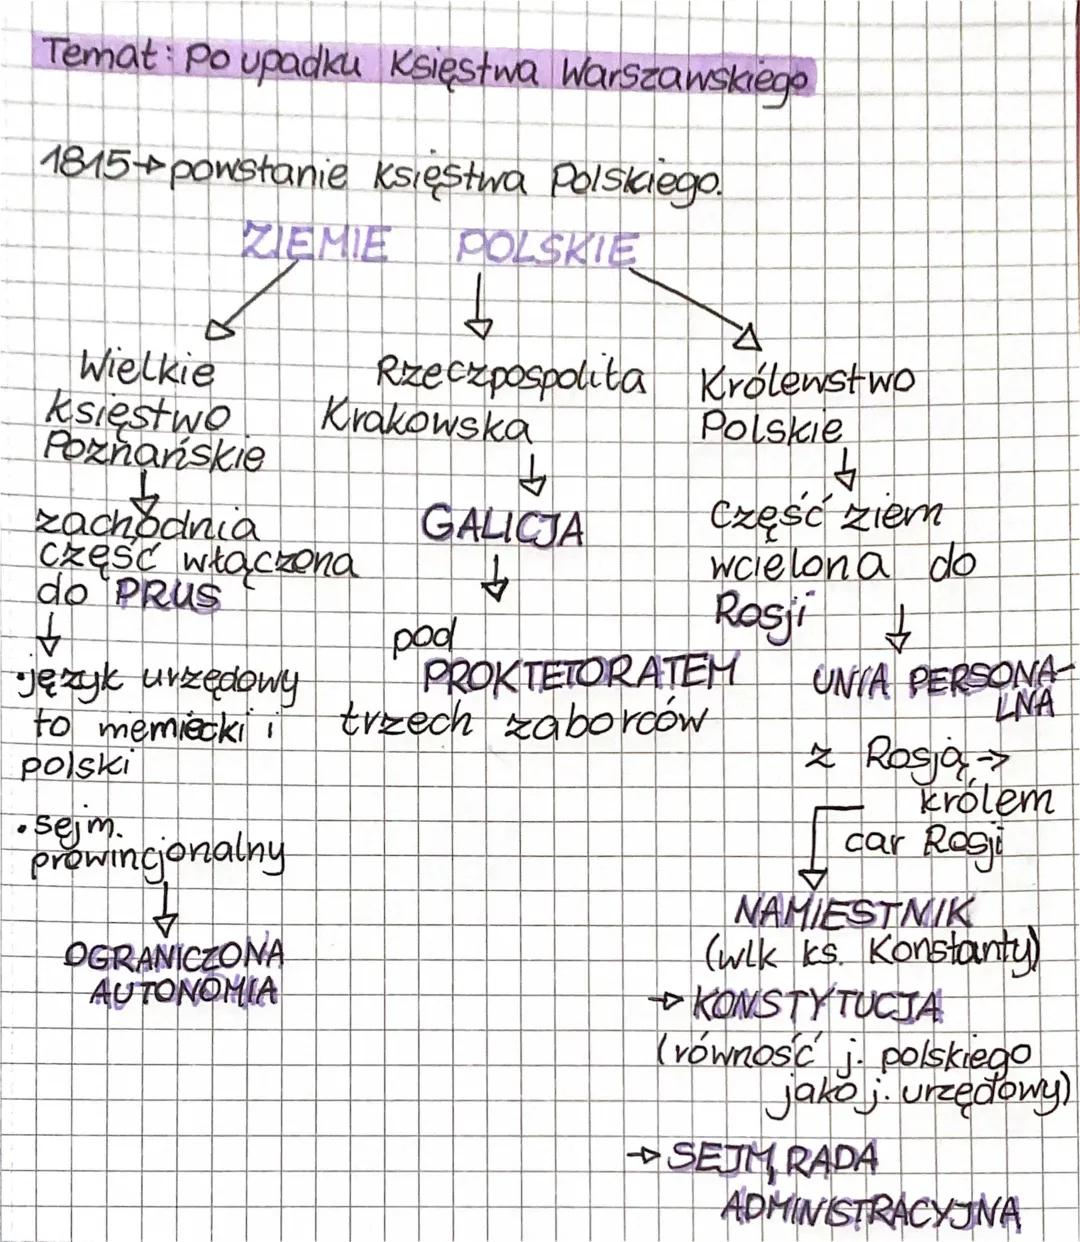 Temat: Po upadku Księstwa Warszawskiego
1815→powstanie Księstwa Polskiego.
ZIEMIE POLSKIE
Wielkie
Księstwo
Poznańskie
↓
zachodnia
część włączona
do PRUS
↓
•język urzędowy
to niemiecki i
polski
•sejm.
prowincjonalny
↓
OGRANICZONA
AUTONOMIA
Rzeczpospolita
Krakowska
↓
GALICJA
↓
pod
PROKTETORATEM
trzech zaborców
Królewstwo
Polskie
↓
Część ziem
wcielona do
Rosji ↓
UNIA PERSONA-
LNA
z Rosją→
królem
car Rosji
NAMIESTNIK
(wlk ks. Konstanty)
→KONSTYTUCJA
(równość j. polskiego
jako j. urzędowy)
→SEJM, RADA
ADMINISTRACYJNA